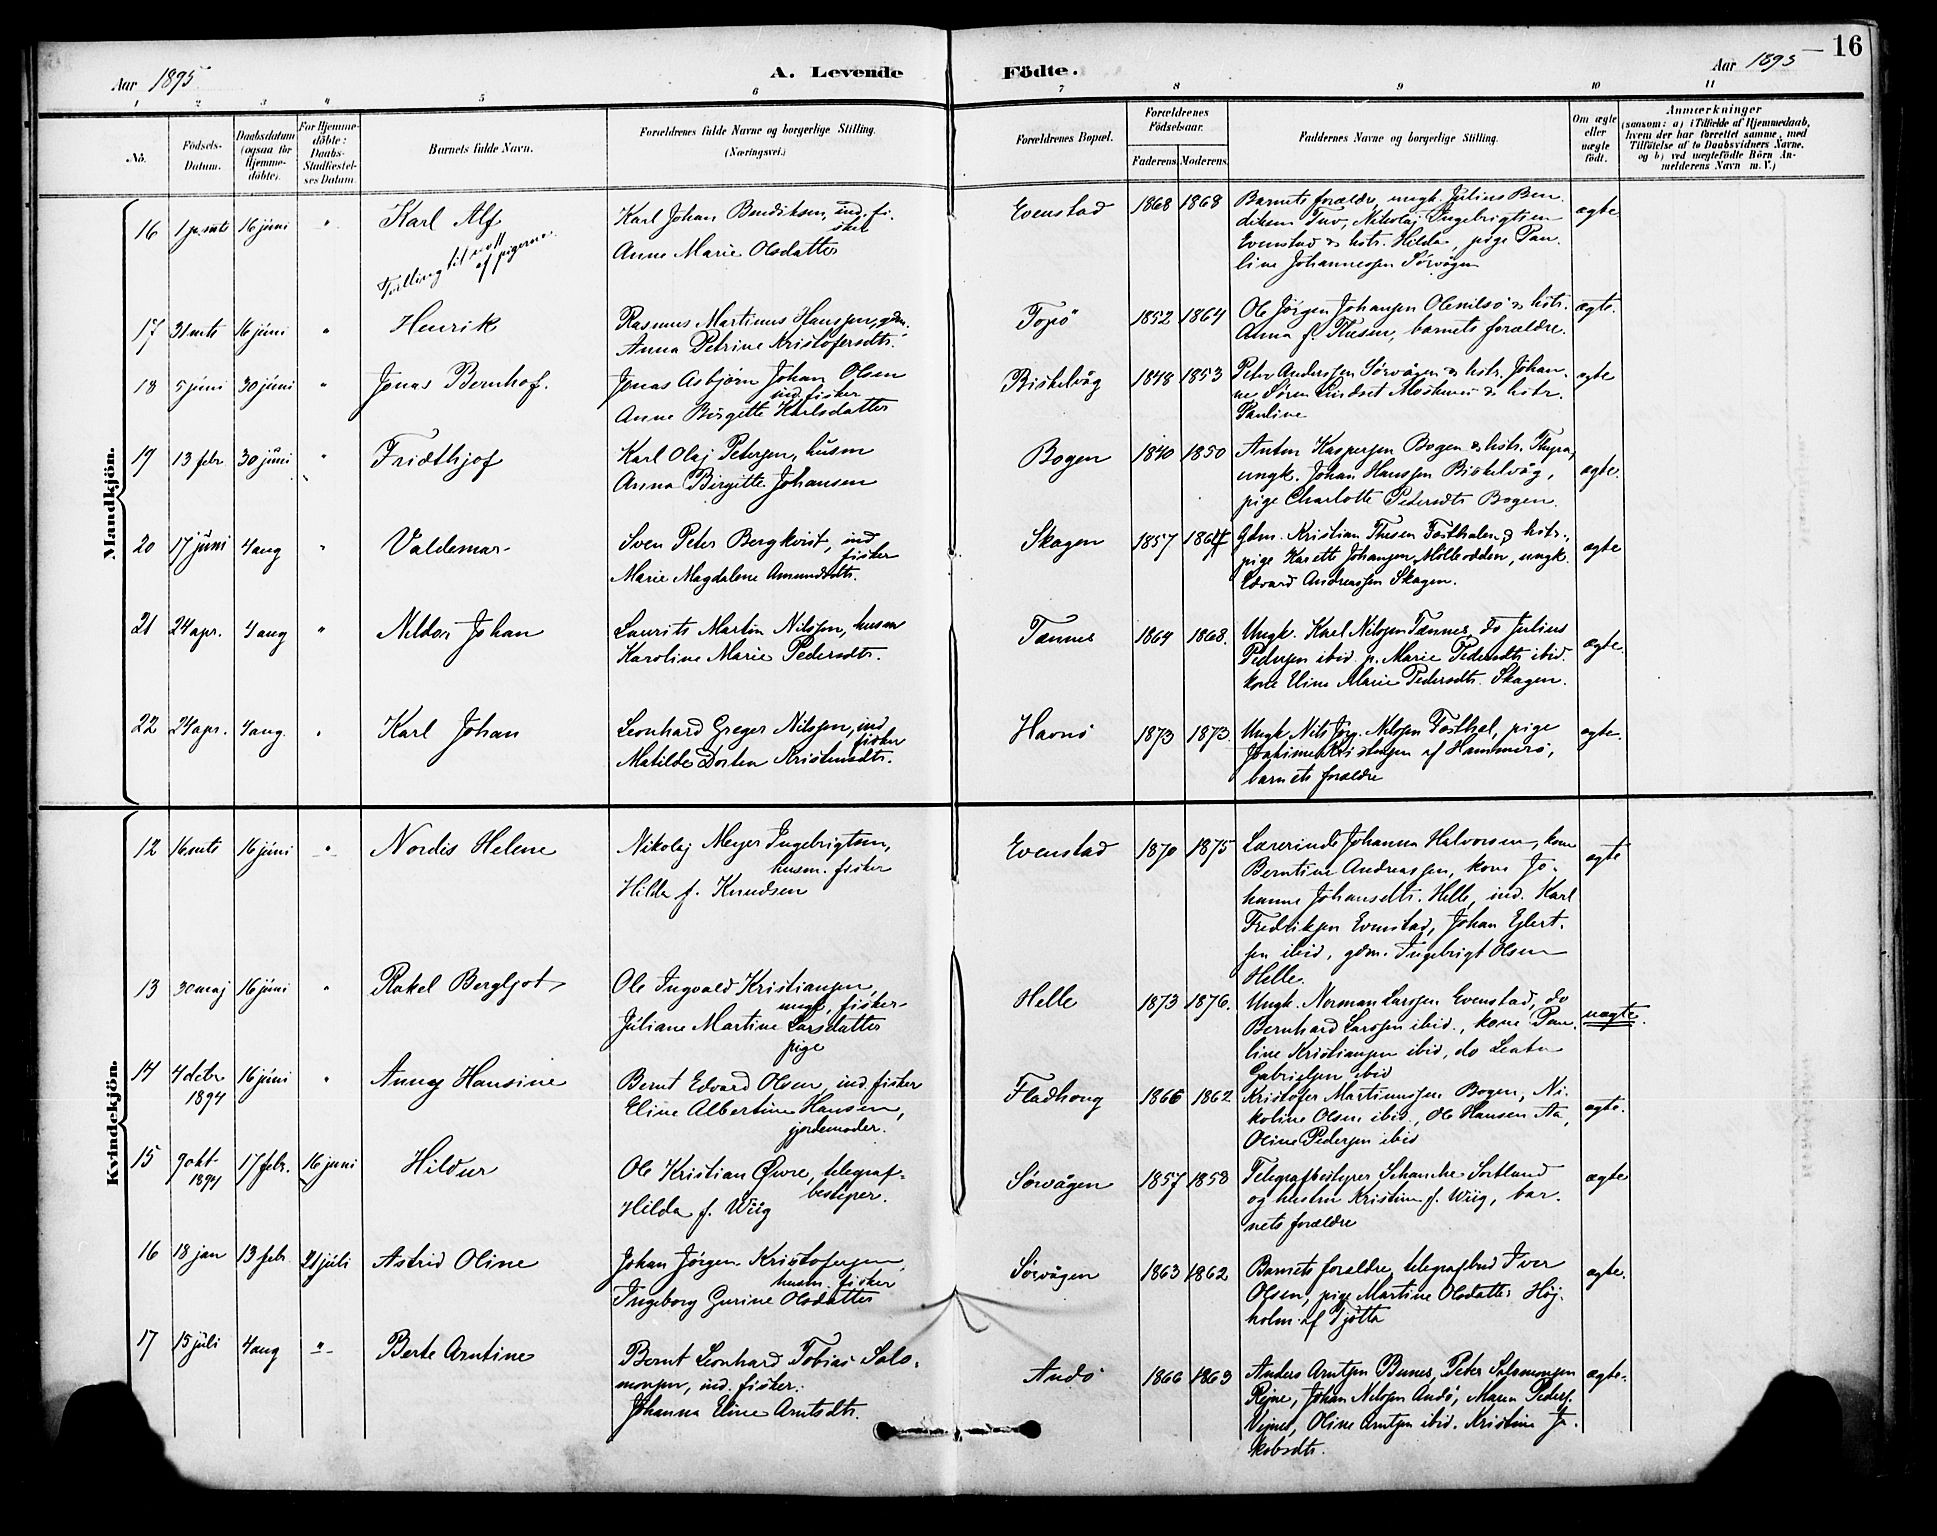 16
Aar 1895
A. Levende Födte.
Aar 1895
1 2 3 4 5 6 7 8 9 10 11
No.
Födsels-
Datum.
Daabsdatum
(ogsaa for
Hjemme-
döbte).
For Hjemme-
döbte:
Daabs-
Stadfæstel-
ses Datum.
Barnets fulde Navn.
Forældrenes fulde Navne og borgerlige Stilling.
(Næringsvei.)
Forældrenes Bopæl.
Forældrenes
Födselsaar.
Faderens. Moderens.
Faddernes Navne og borgerlige Stilling.
Om ægte
eller
uægte
födt.
Anmærkninger
(saasom: a) i Tilfælde af Hjemmedaab,
hvem der har forrettet samme, med
Tilföielse af to Daabsvidners Navne,
og b) ved uægtefödte Börn An-
melderens Navn m. V.)
Mandkjön.
16 16 juni " Karl Alf
Tvilling til
af pigerne.
Karl Johan Bendiksen, ind. fi-
sker
Anne Marie Olsdatter
Evenstad 1868 1868
Barnets forældre, ungk. Julius Ben
diksen Tuv, Nikolaj Ingebrigtsen
Evenstad & hstr. Hilda, pige Pau-
line Johannessen Sørvågen
ægte
17 31 mts 16 juni " Henrik
Rasmus Martinus Hanssen, gdm.
Anna Petrine Kristofersdtr.
Topø 1852 1864
Ole Jörgen Johansen Olenilsø & hstr.
Anna f. Thesen, barnets forældre.
ægte.
18 5 juni 30 juni " Jonas Bernhof.
Jonas Asbjørn Johan Olsen
ind. fisker
Anne Birgitte Karlsdatter
Bistelvåg 1848 1853
Peter Anderssen Sørvågen & hstr. Johan-
ne, Søren Lindset Moskenes & hstr.
Pauline
ægte
19 13 febr 30 juni " Fridthjof
Karl Olaj Petersen, husm
Anna Birgitte Johansen
Bogen 1840 1850
Anton Kaspersen Bogen & hstr. Thyra,
ungk. Johan Hanssen Bistelvåg,
pige Charlotte Pedersdtr Bogen.
ægte.
20 17 juni 4 aug " Valdemar
Sven Peter Bergkvist, ind
fisker
Marie Magdalene Amundsdtr.
Skagen 1857 1864
Gdm. Kristian Thesen Fosthalen & hstr.,
pige Karette Johansen, Mølleodden, ungk.
Edvard Andreassen Skagen.
ægte
21 24 apr. 4 aug " Neldor Johan
Laurits Martin Nilssen, husm
Karoline Marie Pedersdtr.
Tennes 1864 1868.
Ungk. Karl Nilssen Tennes, do Julius
Pedersen ibid. p. Marie Pedersdtr ibid.
kone Eline Marie Pedersdtr. Skagen.
ægte.
22 24 apr. 4 aug. " Karl Johan
Leonhard Greger Nilssen, ind.
fisker
Matilde Dortea Kristensdtr.
Havnø 1873 1873.
Ungk. Nils Jørg. Nilssen Fosthal, pige
af Hammerø,
barnets forældre
ægte.
Kvindekjön.
12 16 mts 16 juni " Nordis Helene
Nikolaj Meyer Ingebrigtsen,
husm. fisker
Hilda f. Knudsen
Evenstad 1870 1875
Lærerinde Johanna Halvorsen, kone
Berntine Andreassen, kone Jo-
hanna Johansdtr. Helle, ind. Karl
Fredriksen Evenstad, Johan Eilert-
sen ibid, gdm. Ingebrigt Olsen
Helle.
ægte
13 30 maj 16 juni " Rakel Bergljot
Ole Ingvald Kristiansen,
ungk. fisker
Juliane Martine Larsdatter
pige
Helle 1873 1876.
Ungk. Norman Larssen Evenstad, do
Bernhard Larssen ibid., kone Pau-
line Kristiansen ibid, do Leata
Gabrielsen ibid
uægte.
14 4 decbr 1894 16 juni " Anna Hansine
Bernt Edvard Olsen, ind. fisker
Eline Albertine Hansen,
jordemoder.
Fladhong 1866 1862
Kristofer Martinussen Bogen, Ni-
koline Olsen ibid., Ole Hansen Aa,
Oline Pedersen ibid
ægte.
15 9 okt 1894 17 febr. 16 juni Hildur
Ole Kristian Øvre, telegraf-
bestyrer.
Hilda f. Wiig
Sørvågen 1857 1858
Telegrafbestyrer Schanche Sortland
og hustru Kristine f. Wiig, bar-
nets forældre
ægte
16 18 jan 13 febr 21 juli Astrid Oline
Johan Jörgen Kristofersen,
husm. fisker
Ingeborg Gurine Olsdatter
Sørvågen 1863 1862
Barnets forældre, telegrafbud Iver
Olsen, pige Martine Olsdatter Høj-
holm af Tjøtta
ægte.
17 15 juli 4 aug " Berte Arntine
Bernt Leonhard Tobias Salo-
monsen, ind. fisker.
Johanna Eline Arntsdtr.
Andø 1866 1863
Anders Arntsen Bunes, Peter Salomonsen
Rejne, Johan Nilssen Andø, Maren Peders.
Vejnes, Oline Arntsen ibid. Kristine Ja-
kobsdtr.
ægte.